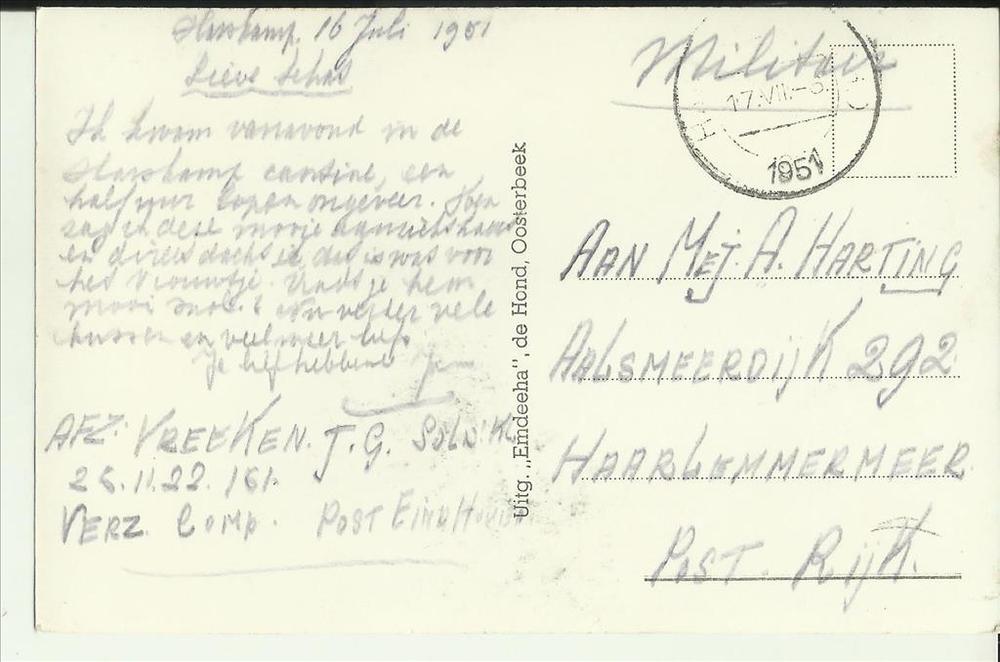 Harskamp. 16 Juli 1951
Lieve schat
Ik kwam vanavond in de
Harskamp cantine, een
half uur lopen ongeveer. Toen
zag ik deze mooie
en direct dacht ik, dit is wat voor
het vrouwtje. Vindt je hem
mooi snoet. En verder vele
kussen en veel meer liefs
Je liefhebbend Jan
AFZ: VREEKEN. J.G. SOLD. KL
26.11.22.161.
VERZ. COMP. POST EINDHOVEN
Uitg. „Emdeeha", de Hond, Oosterbeek
Militair
17.VII.
1951
AAN MEJ. A. HARTING
AALSMEERDIJK 292
HAARLEMMERMEER
POST. RIJK.